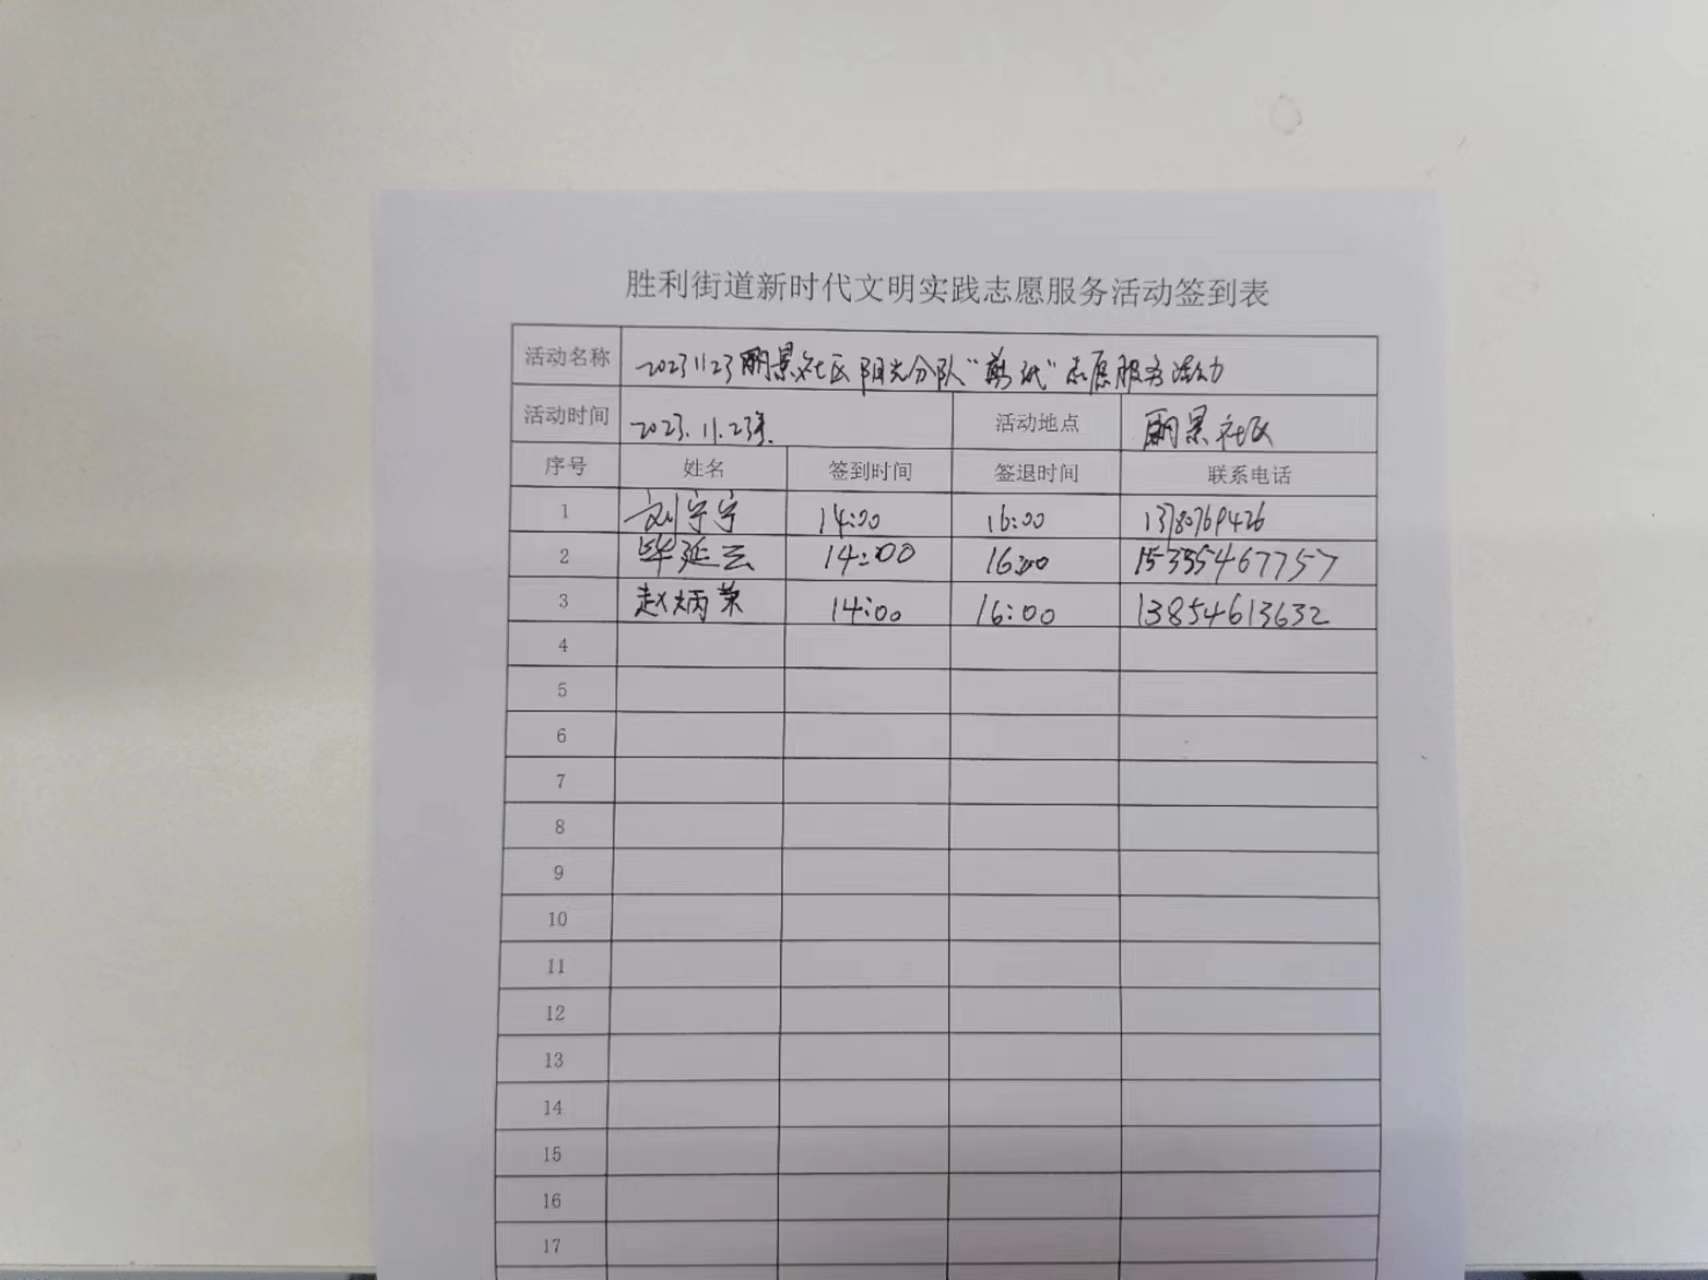 胜利街道新时代文明实践志愿服务活动签到表
活动名称 20231123丽景社区阳光分队“剪纸”志愿服务活动
活动时间 2023.11.23 活动地点 丽景社区
序号 姓名 签到时间 签退时间 联系电话
1 刘宁宁 14:00 16:00 13780769426
2 毕延云 14:00 16:00 15355467757
3 赵炳荣 14:00 16:00 13854613632
4
5
6
7
8
9
10
11
12
13
14
15
16
17